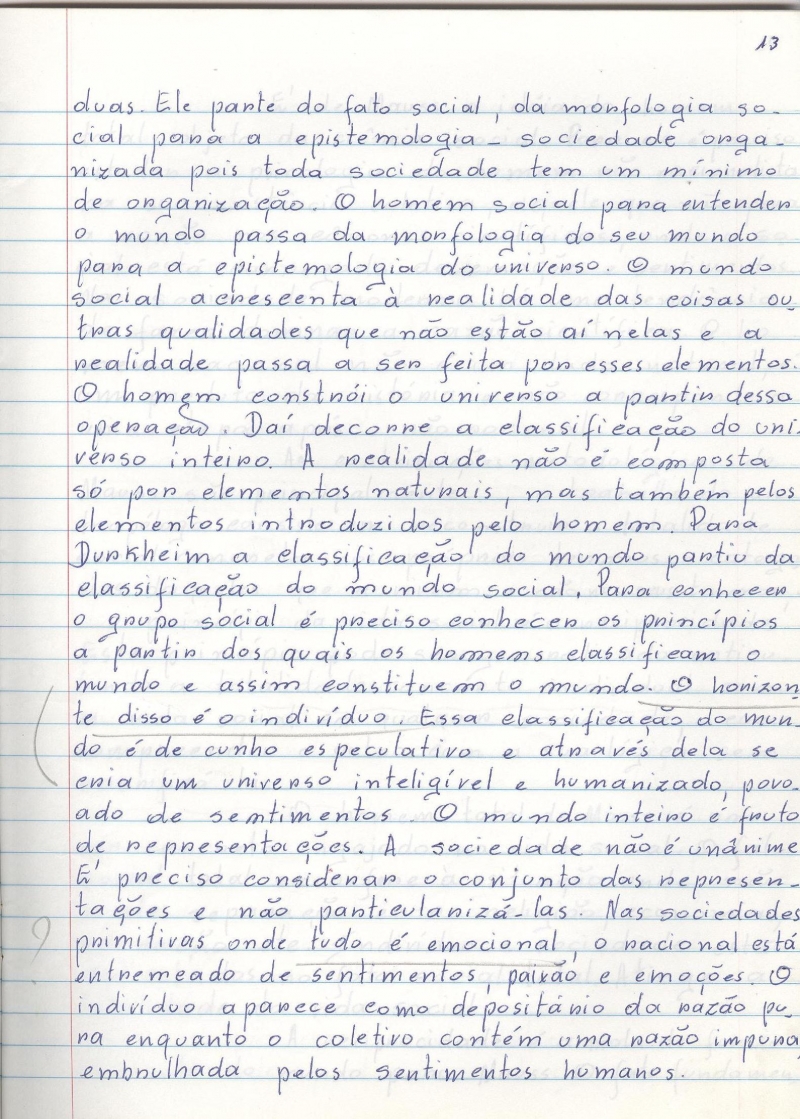 13
duas. Ele parte do fato social, da morfologia so-
cial para a epistemologia - sociedade orga-
nizada pois toda sociedade tem um mínimo
de organização. O homem social para entender
o mundo passa da morfologia do seu mundo
para a epistemologia do universo. O mundo
social acrescenta à realidade das coisas ou
tras qualidades que não estão aí nelas e a
realidade passa a ser feita por esses elementos.
O homem constrói o universo a partir dessa
operação. Daí decorre a classificação do uni-
verso inteiro. A realidade não é composta
só por elementos naturais, mas também pelos
elementos introduzidos pelo homem. Para
Durkheim a classificação do mundo partiu da
classificação do mundo social. Para conhecer
o grupo social é preciso conhecer os princípios
a partir dos quais os homens classificam o
mundo e assim constituem o mundo. O horizon
te disso é o indivíduo. Essa classificação do mun-
do é de cunho especulativo e através dela se
cria um universo inteligível e humanizado, povo-
ado de sentimentos. O mundo inteiro é fruto
de representações. A sociedade não é unânime
É preciso considerar o conjunto das represen-
tações e não particularizá-las. Nas sociedades
primitivas onde tudo é emocional, o racional está
entremeado de sentimentos, paixão e emoções. O
indivíduo aparece como depositário da razão pu-
ra enquanto o coletivo contém uma razão impura,
embrulhada pelos sentimentos humanos.
?